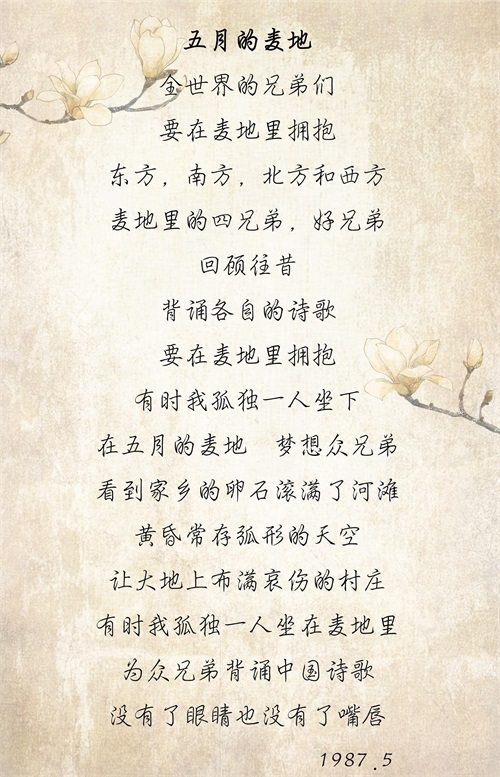 五月的麦地
全世界的兄弟们
要在麦地里拥抱
东方，南方，北方和西方
麦地里的四兄弟，好兄弟
回顾往昔
背诵各自的诗歌
要在麦地里拥抱
有时我孤独一人坐下
在五月的麦地　梦想众兄弟
看到家乡的卵石滚满了河滩
黄昏常存弧形的天空
让大地上布满哀伤的村庄
有时我孤独一人坐在麦地里
为众兄弟背诵中国诗歌
没有了眼睛也没有了嘴唇
1987.5